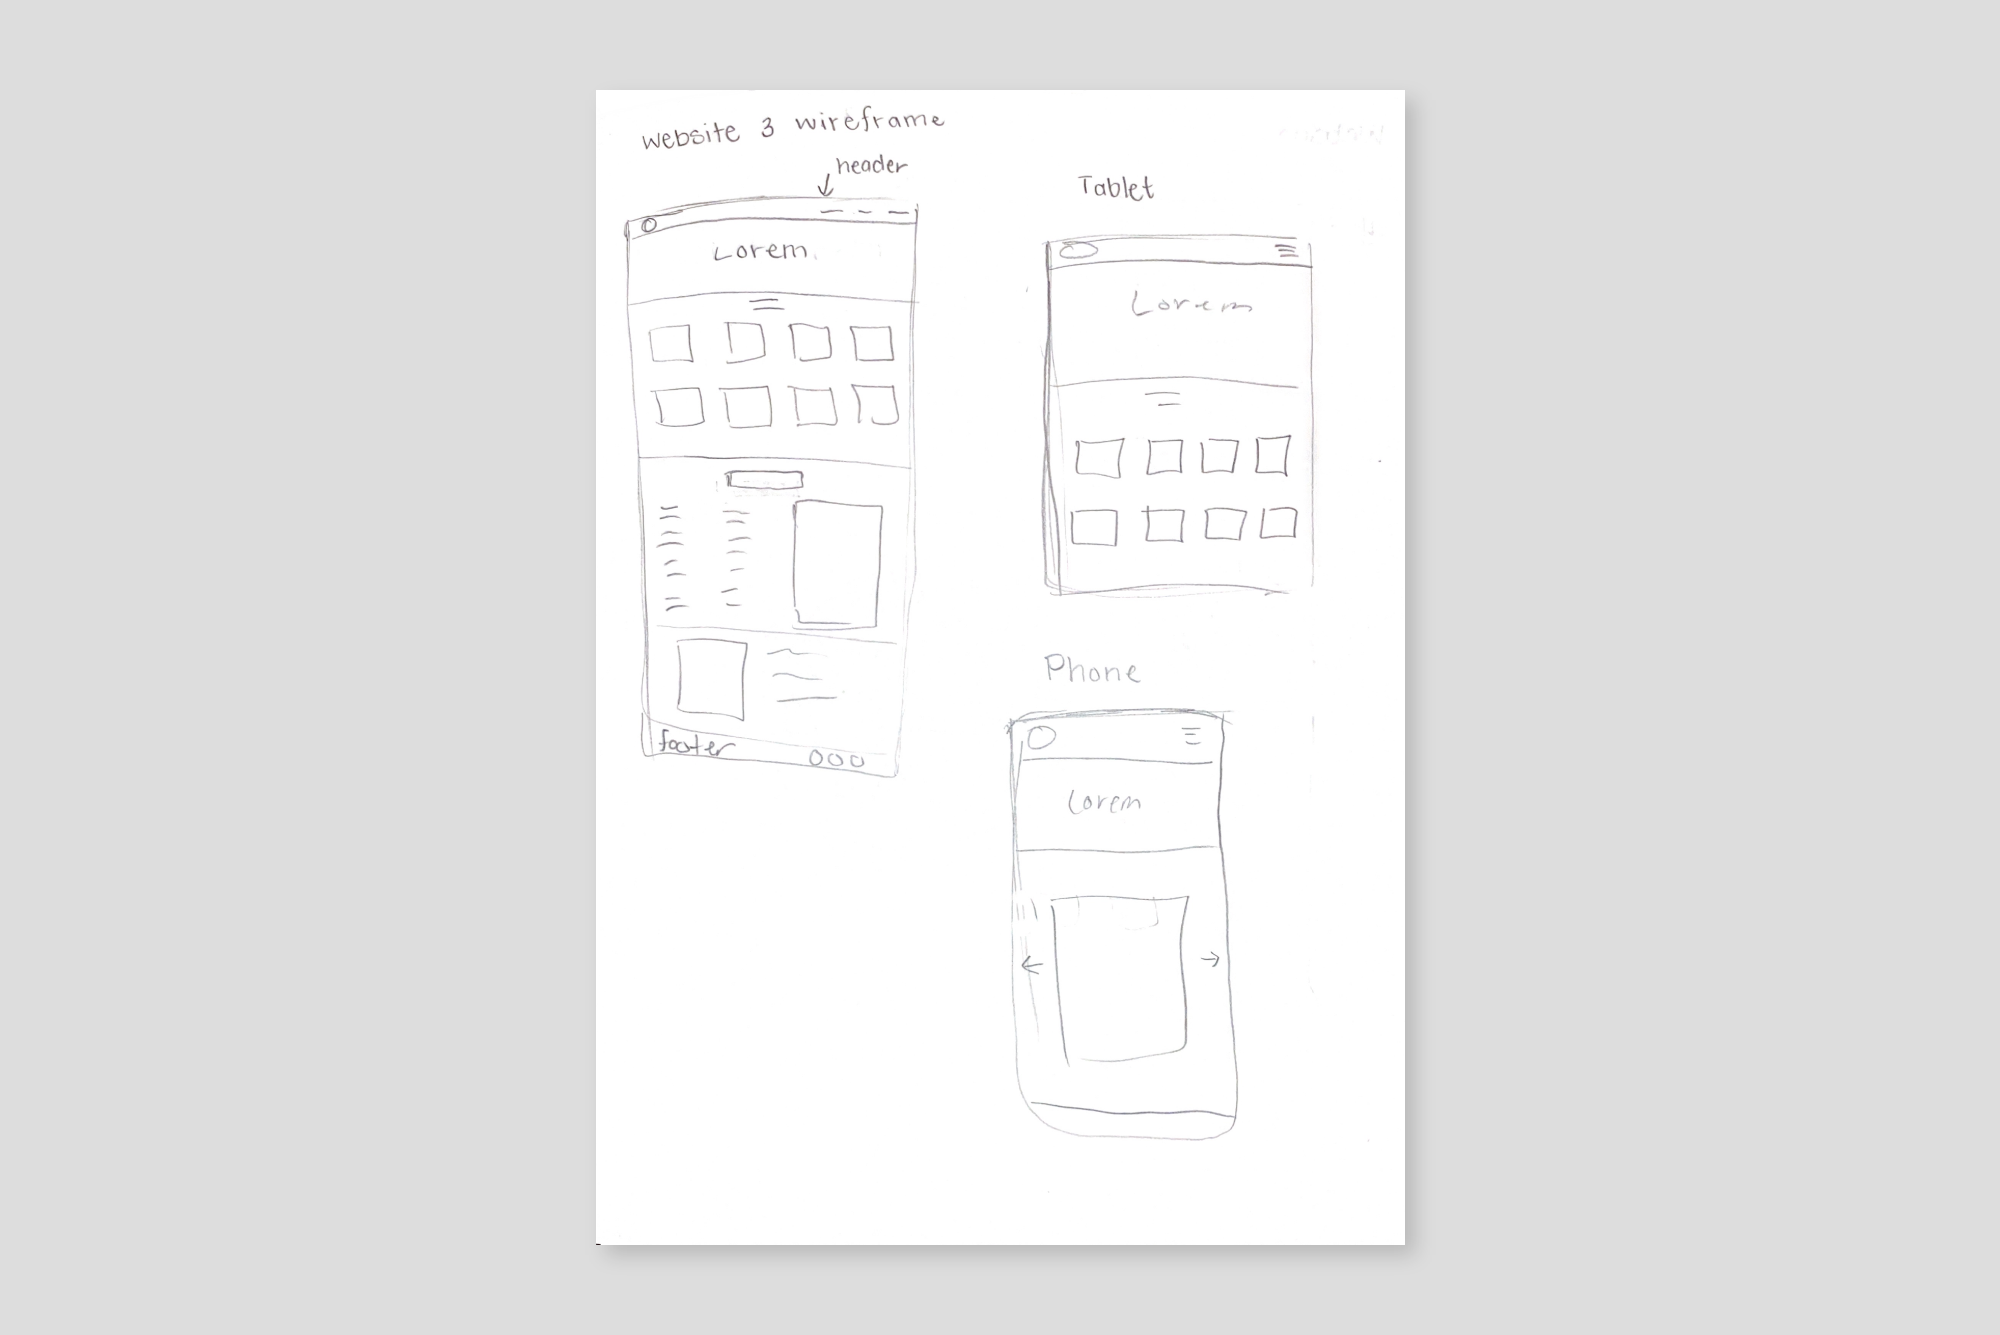 website 3 wireframe
header
Lorem
footer
Tablet
Lorem
Phone
Lorem